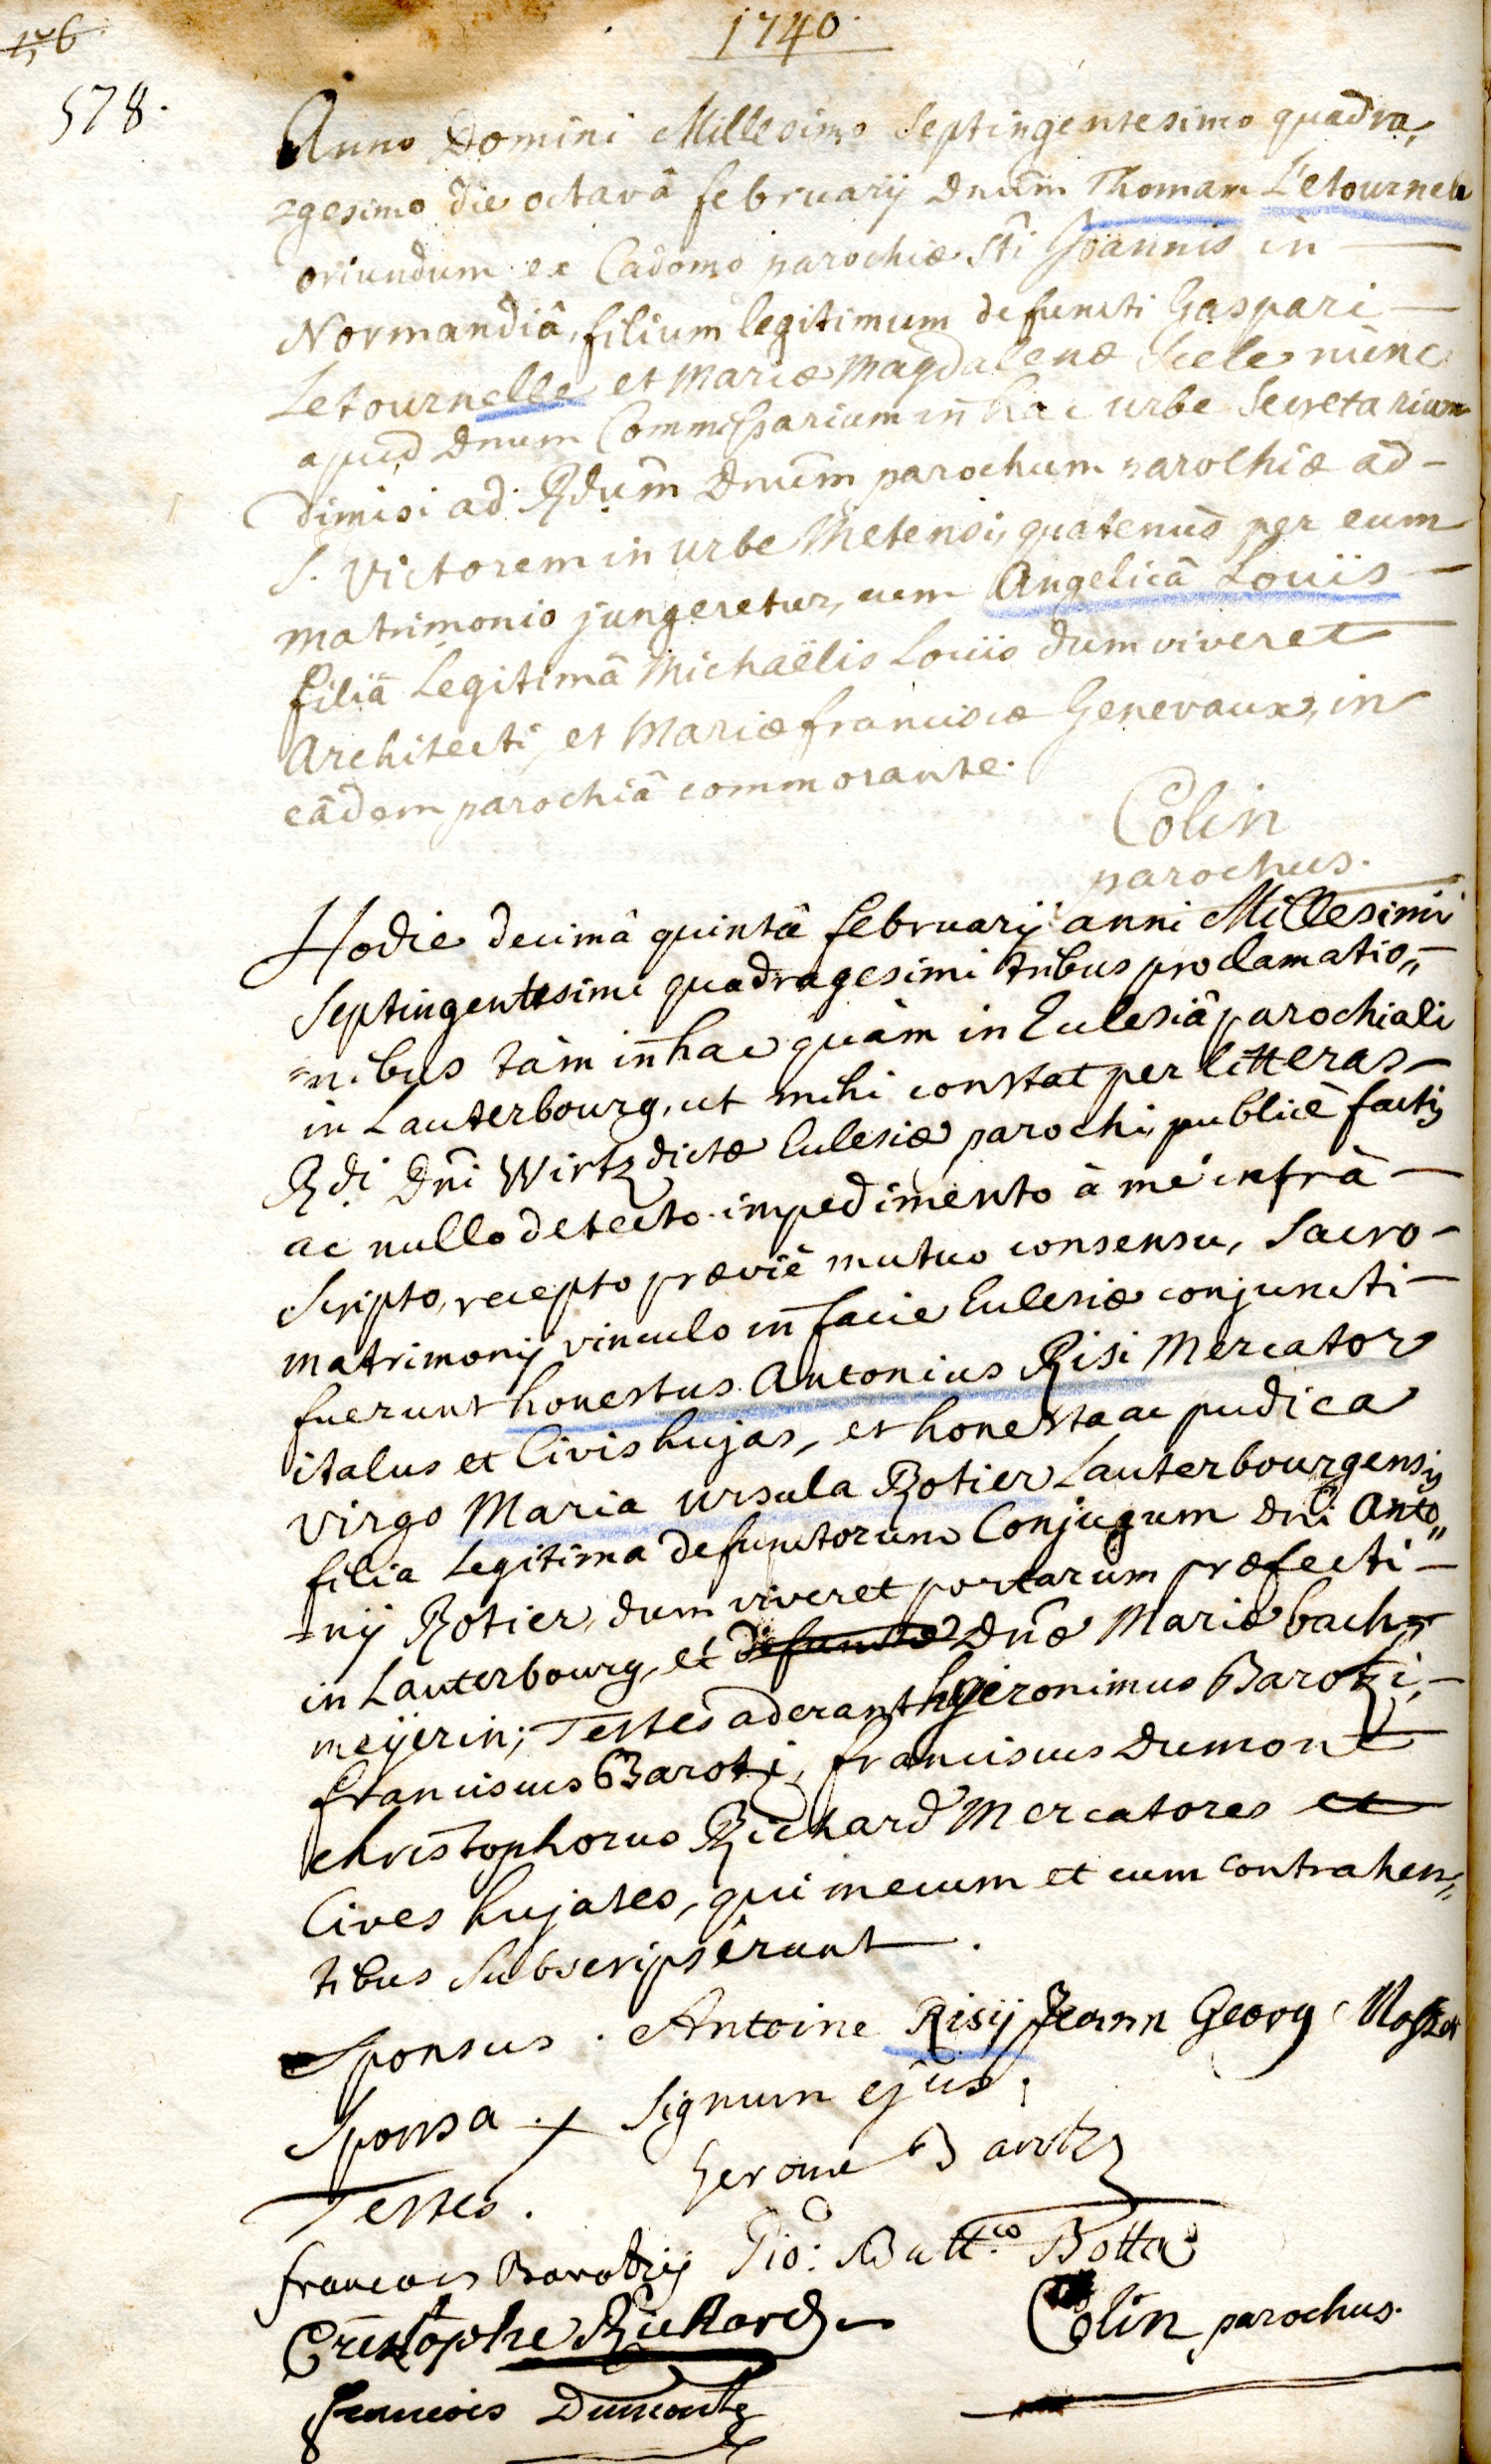 176
1740.
578.
Anno Domini Millesimo Septingentesimo quadra,
gesimo die octavâ februarij Dnum Thomam L'etournele
oriundum ex Cadomo parochiæ Sti Joannis in
Normandiâ, filium legitimum defuncti Gaspari
Letournelle et Mariæ Magdalenæ Scele nunc
apud Dnum Commissarium in hac urbe Secretarium
dimisi ad Rdum Dnum parochum parochiæ ad-
S. Victorem in urbe Metensi, quatenus per eum
matrimonio jungeretur, cum Angelicâ Louis
filiâ Legitimâ Michaëlis Louis dum viveret
Architecti, et Mariæ franciscæ Genevaux, in
eâdem parochiâ commorante.
Colin
parochus.
Hodie decimâ quintâ februarij anni Millesimi
Septingentesimi quadragesimi tribus proclamatio„
nibus tàm in hac quàm in Ecclesiâ parochiali
in Lauterbourg, ut mihi constat per litteras
Rdi Dni Wirtz dictæ Ecclesiæ parochi, publicè factis
ac nullo detecto impedimento à me infrà
Scripto, recepto præviè mutuo consensu, Sacro-
matrimonij vinculo in facie Ecclesiæ conjuncti
fuerunt honestus Antonius Risi Mercator
italus et Civis hujas, et honesta ac pudica
virgo Maria Ursula Rotier Lauterbourgensis
filia Legitima defunctorum Conjugum Dni Anto„
nij Rotier, dum viveret portarum præfecti
in Lauterbourg, et defunctæ Dnæ Mariæ bach=
meÿerin; Testes aderant hyeronimus Barotzi,
franciscus Barotzi, franciscus Dumont
christophorus Richard Mercatores et
Cives hujates, qui mecum et cum contrahen„
tibus subscripsêrunt.
Sponsus. Antoine Risij Jeann Georg
Sponsa x Signum ejus.
Testes. Gerome
francois Barotzij Gio: Batt.co Botta
Cristophe Richard Colin parochus.
francois Dumont